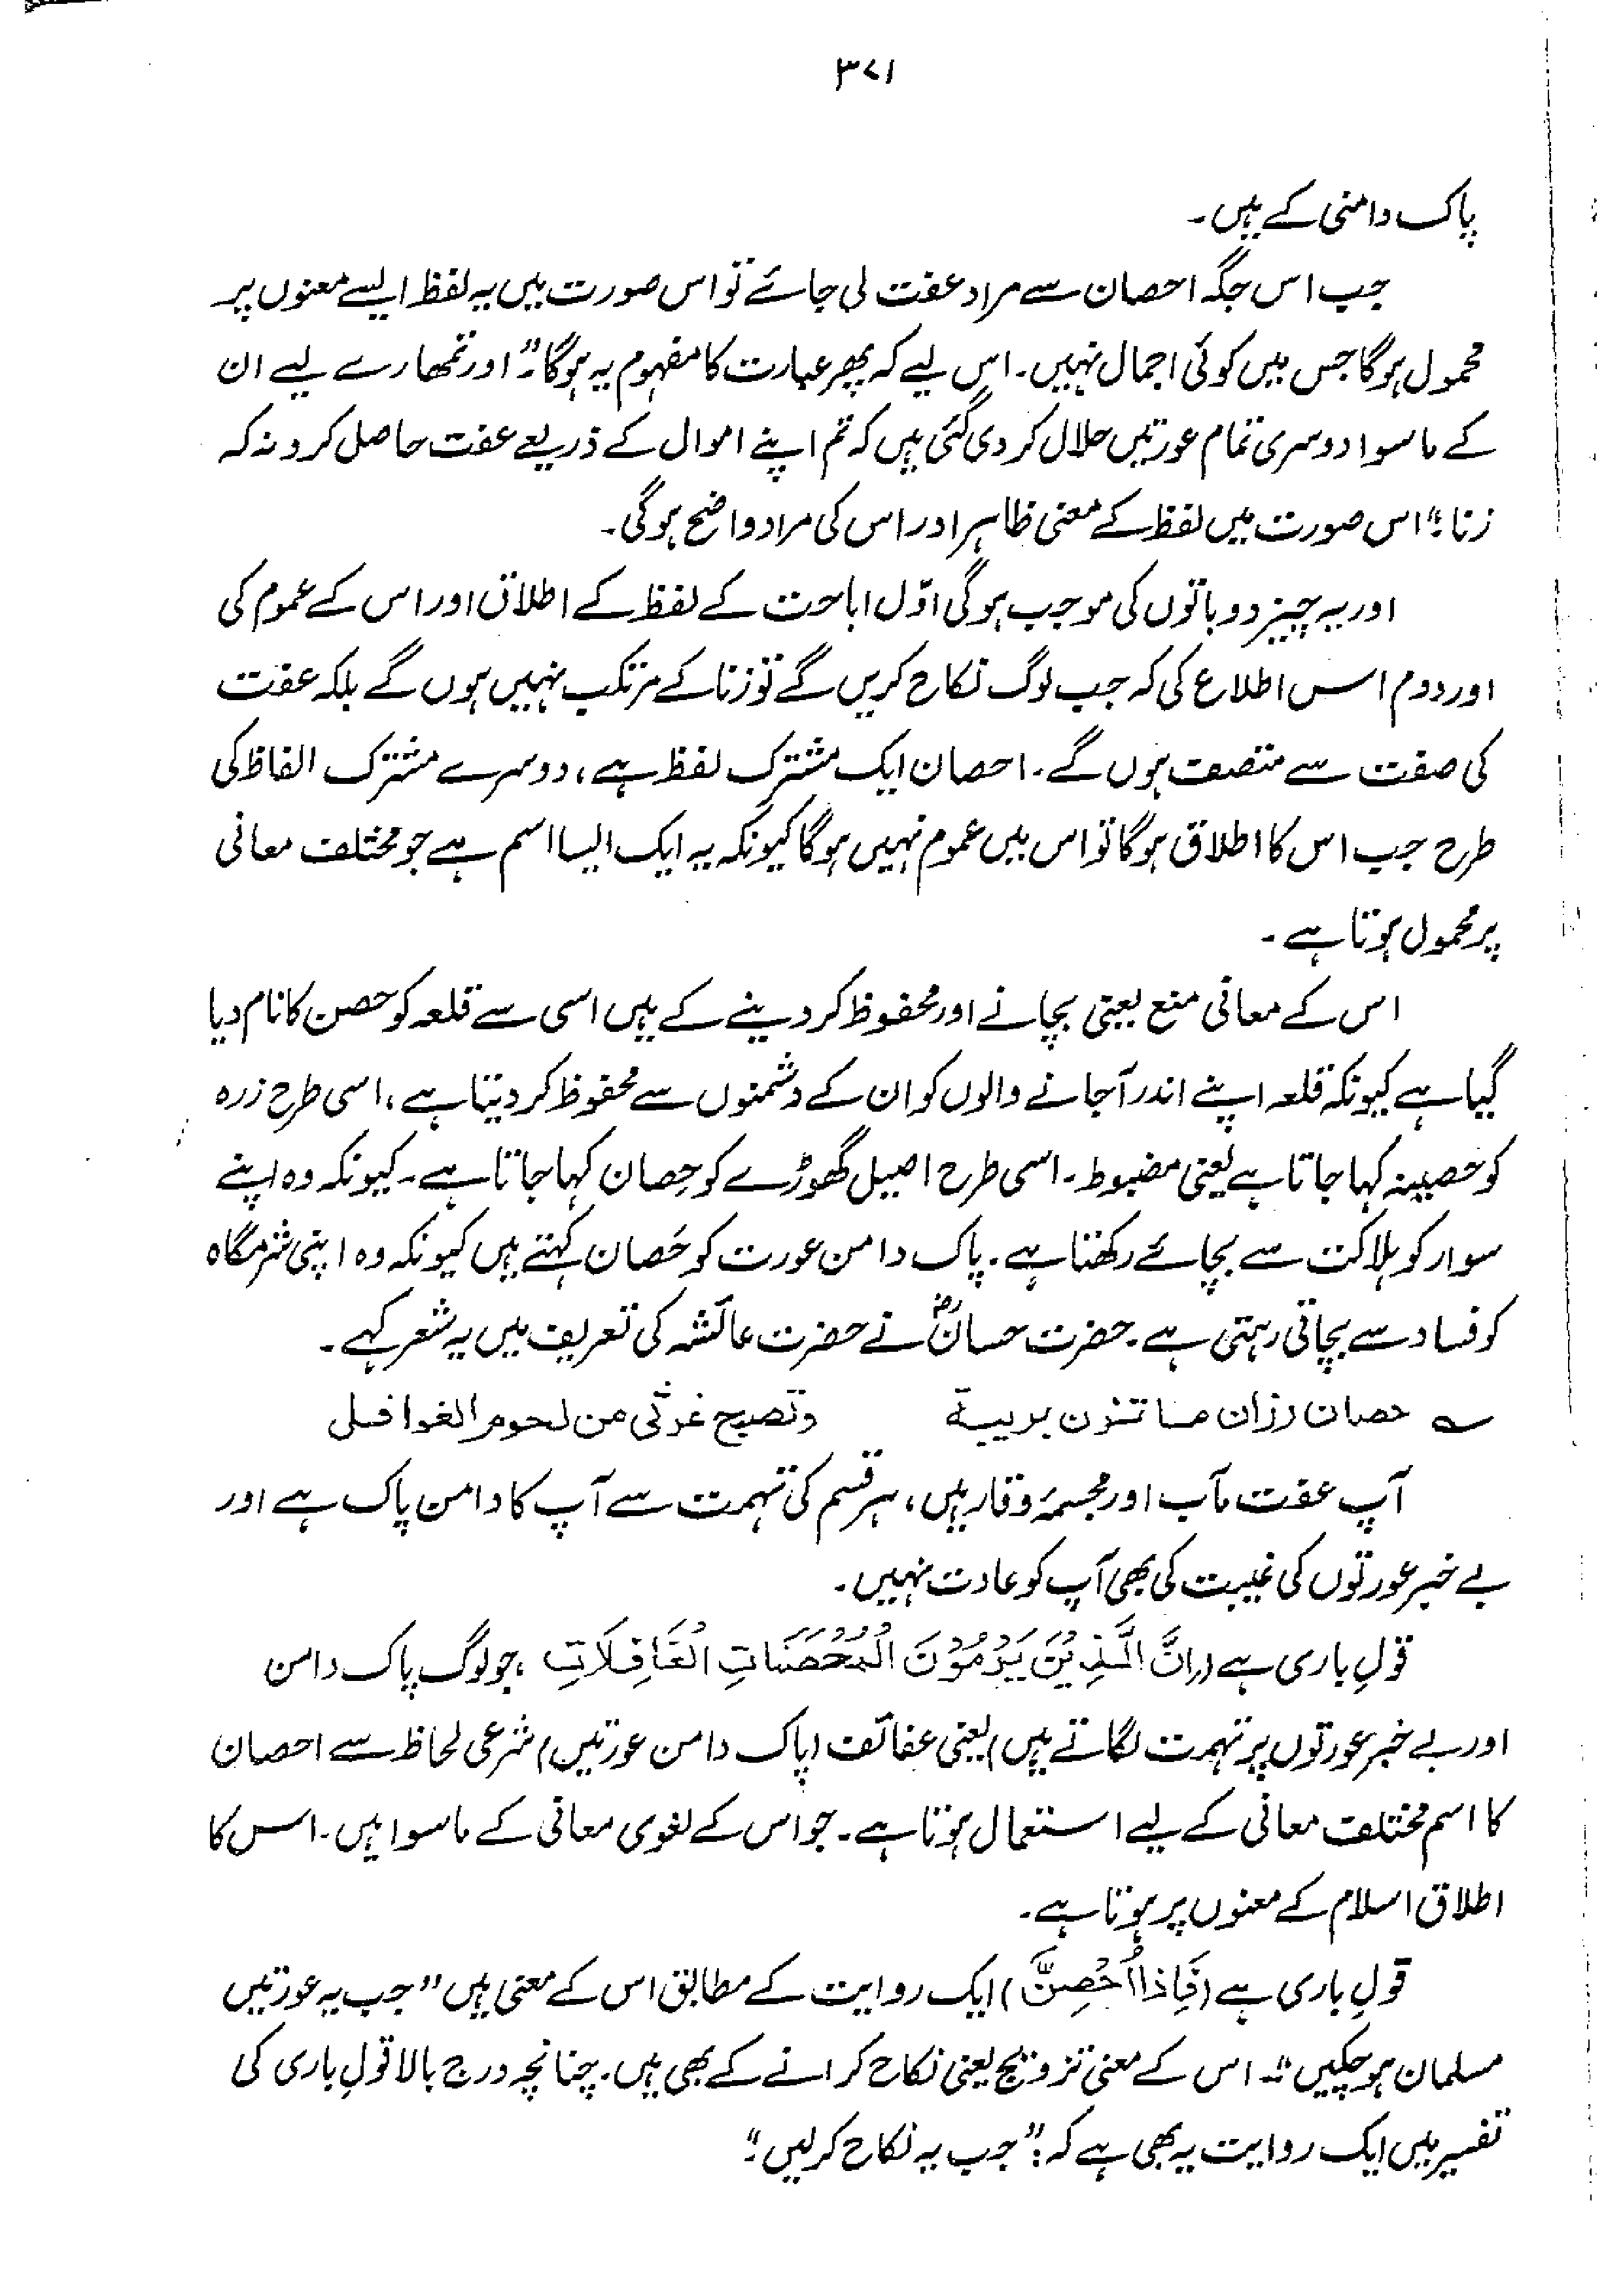 ۳۷۱
پاک دامنی کے ہیں۔
جب اس جگہ احصان سے مراد عفت لی جائے تو اس صورت میں یہ لفظ ایسے معنوں پر
محمول ہوگا جس میں کوئی اجمال نہیں۔ اس لیے کہ پھر عبارت کا مفہوم یہ ہوگا۔" اور تمھارے لیے ان
کے ماسوا دوسری تمام عورتیں حلال کر دی گئی ہیں کہ تم اپنے اموال کے ذریعے عفت حاصل کرو نہ کہ
زنا"؛ اس صورت میں لفظ کے معنی ظاہر اور اس کی مراد واضح ہوگی۔
اور یہ چیز دو باتوں کی موجب ہوگی اوّل اباحت کے لفظ کے اطلاق اور اس کے عموم کی
اور دوم اس اطلاع کی کہ جب لوگ نکاح کریں گے تو زنا کے مرتکب نہیں ہوں گے بلکہ عفت
کی صفت سے متصف ہوں گے۔ احصان ایک مشترک لفظ ہے، دوسرے مشترک الفاظ کی
طرح جب اس کا اطلاق ہوگا تو اس میں عموم نہیں ہوگا کیونکہ یہ ایک ایسا اسم ہے جو مختلف معانی
پر محمول ہوتا ہے۔
اس کے معانی منع یعنی بچانے اور محفوظ کر دینے کے ہیں اسی سے قلعہ کو حصن کا نام دیا
گیا ہے کیونکہ قلعہ اپنے اندر آجانے والوں کو ان کے دشمنوں سے محفوظ کر دیتا ہے، اسی طرح زرہ
کو حصینہ کہا جاتا ہے یعنی مضبوط۔ اسی طرح اصیل گھوڑے کو حِصان کہا جاتا ہے۔ کیونکہ وہ اپنے
سوار کو ہلاکت سے بچائے رکھتا ہے۔ پاک دامن عورت کو حَصان کہتے ہیں کیونکہ وہ اپنی شرمگاہ
کو فساد سے بچاتی رہتی ہے۔ حضرت حسانؓ نے حضرت عائشہ کی تعریف میں یہ شعر کہے۔
؎ حصان رزان ما تزن بریبة وتصبح غرثی من لحوم الغوافل
آپ عفت مآب اور مجسمۂ وقار ہیں، ہر قسم کی تہمت سے آپ کا دامن پاک ہے اور
بے خبر عورتوں کی غیبت کی بھی آپ کو عادت نہیں۔
قولِ باری ہے (اِنَّ الَّذِیْنَ یَرْمُوْنَ الْمُحْصَنَاتِ الْغَافِلَاتِ، جو لوگ پاک دامن
اور بے خبر عورتوں پر تہمت لگاتے ہیں) یعنی عفائف (پاک دامن عورتیں) شرعی لحاظ سے احصان
کا اسم مختلف معانی کے لیے استعمال ہوتا ہے۔ جو اس کے لغوی معانی کے ماسوا ہیں۔ اس کا
اطلاق اسلام کے معنوں پر ہوتا ہے۔
قولِ باری ہے (فَاِذَا اُحْصِنَّ) ایک روایت کے مطابق اس کے معنی ہیں "جب یہ عورتیں
مسلمان ہو چکیں"۔ اس کے معنی تزویج یعنی نکاح کرانے کے بھی ہیں۔ چنانچہ درج بالا قولِ باری کی
تفسیر میں ایک روایت یہ بھی ہے کہ: "جب یہ نکاح کرلیں"؛